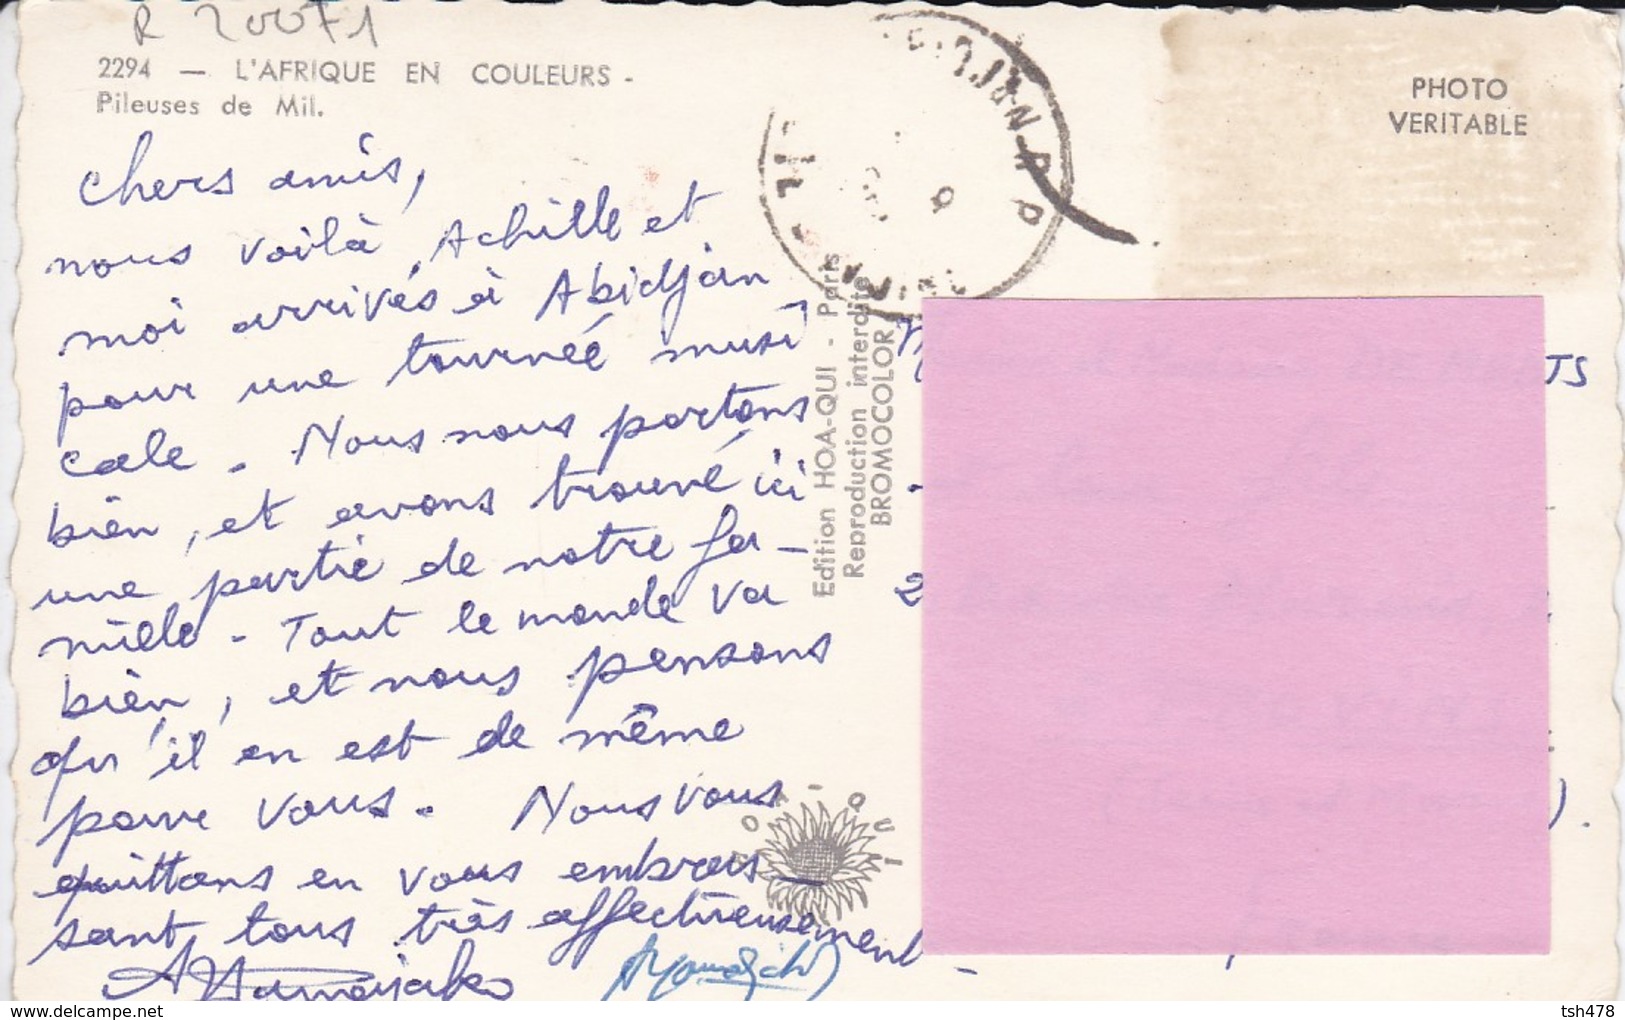 R 20071
2294 — L'AFRIQUE EN COULEURS -
Pileuses de Mil.
PHOTO
VERITABLE
chers amis,
nous voilà, Achille et
moi arrivés à Abidjan
pour une tournée musi
cale. Nous nous portons
bien, et avons trouvé ici
une partie de notre fa-
mille - Tout le monde va
bien, et nous pensons
qu'il en est de même
pour vous. Nous vous
quittons en vous embras-
sant tous très affectueusement -
Edition HOA-QUI - Paris
Reproduction interdite
BROMOCOLOR
TS
2
).
www.delcampe.net
tsh478